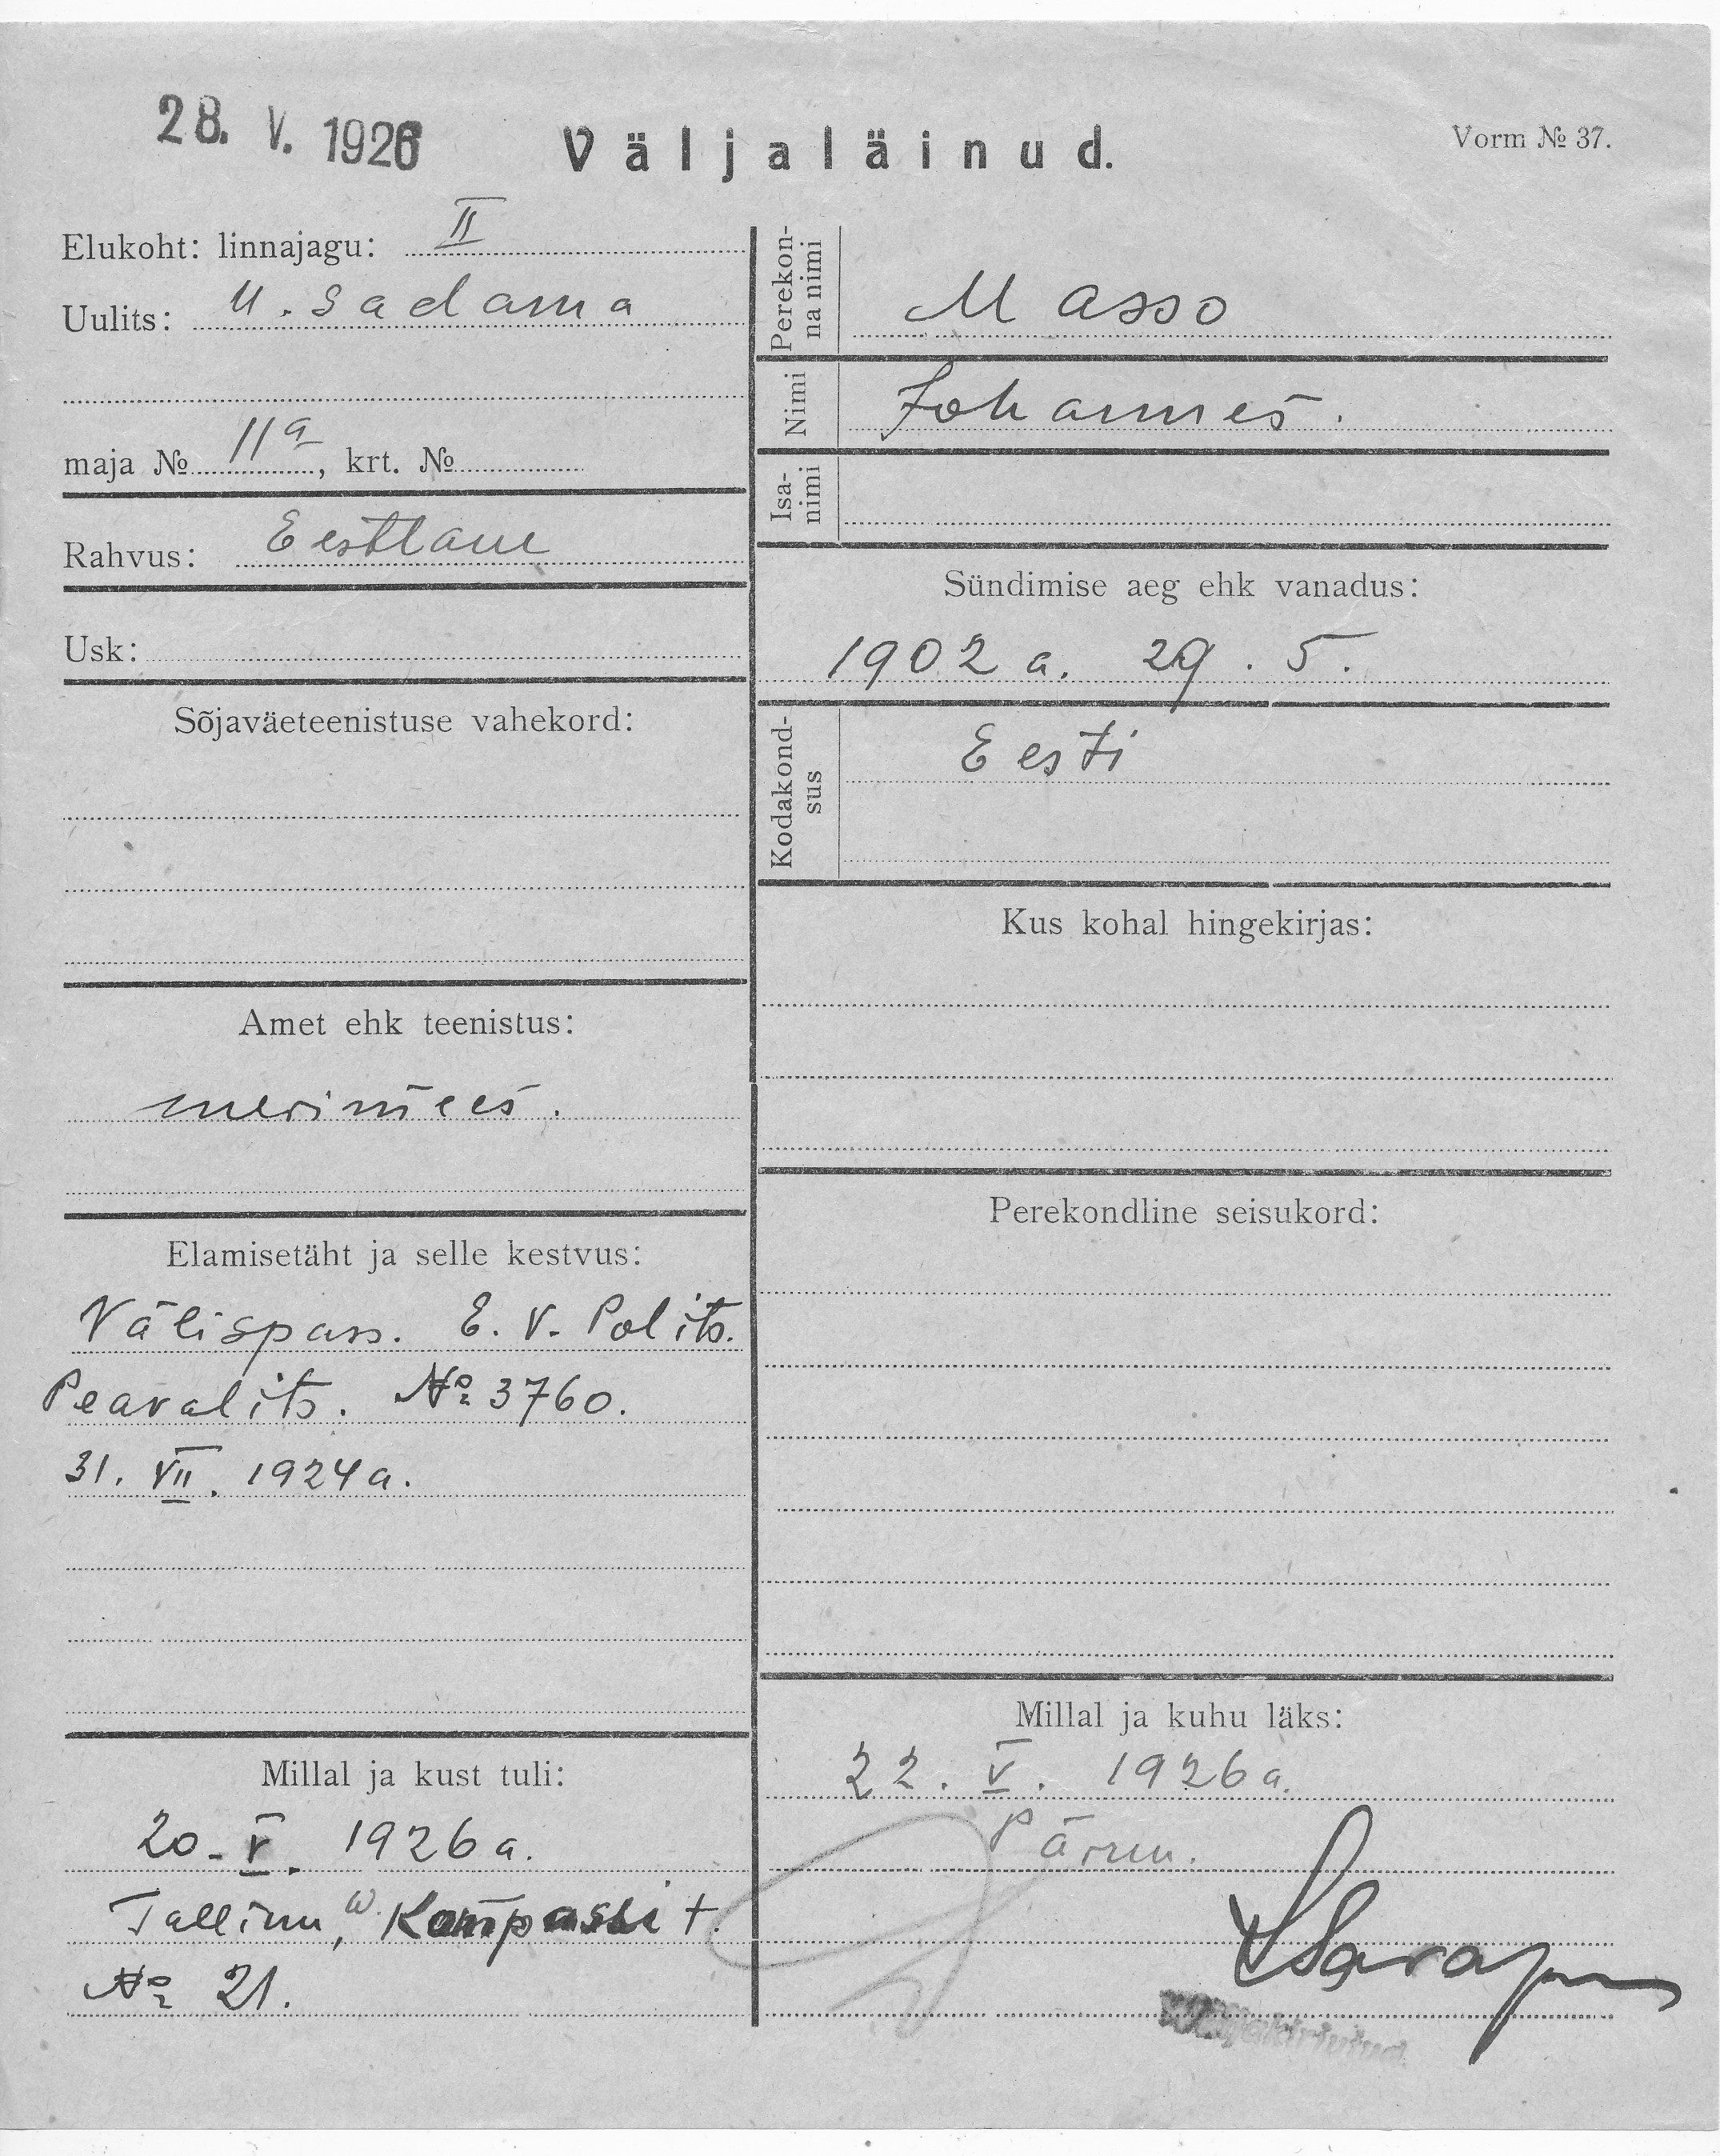 28. V. 1926
Väljaläinud.
Vorm № 37.
Elukoht: linnajagu: II
Uulits: U. Sadama
maja № 11a, krt. №
Rahvus: Eestlane
Usk:
Sõjaväeteenistuse vahekord:
Amet ehk teenistus:
merimees.
Elamisetäht ja selle kestvus:
Välispass. E. V. Polits.
Peavalits. № 3760.
31. VII. 1924 a.
Millal ja kust tuli:
20. V. 1926 a.
Tallinn, Kompassi t.
№ 21.
Perekon-
na nimi
Masso
Nimi
Johannes.
Isa-
nimi
Sündimise aeg ehk vanadus:
1902 a. 29. 5.
Kodakond-
sus
Eesti
Kus kohal hingekirjas:
Perekondline seisukord:
Millal ja kuhu läks:
22. V. 1926 a.
Pärnu.